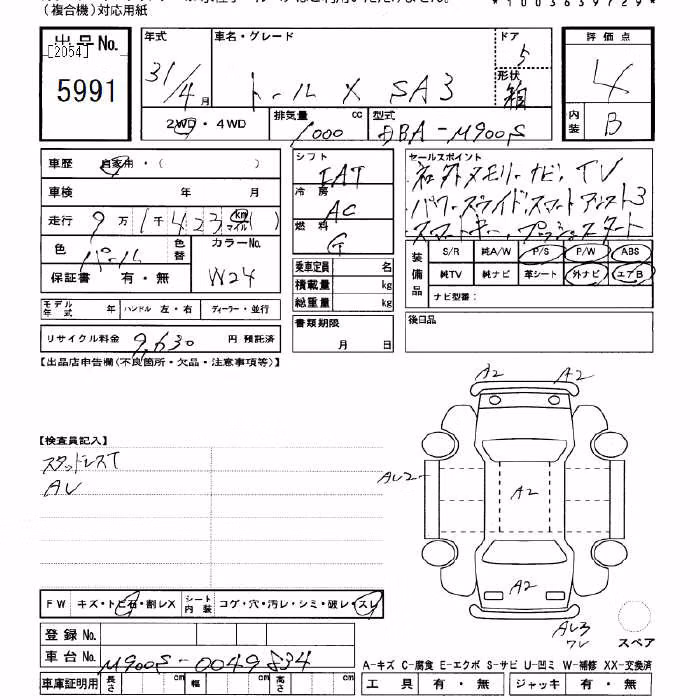 (複合機)対応用紙
*1003639729*
出品No.
[2054]
5991
年式
31/4月
車名・グレード
トール X SA3
ドア
5
形状
箱
評価点
4
内装
B
2WD・4WD
排気量
1000 cc
型式
DBA-M900S
車歴 自家用・( )
車検 年 月
走行 9万1千423 km マイル ( )
色 パール
色替
カラーNo.
W24
保証書 有・無
モデル年式 年 ハンドル 左・右 ディーラー・並行
リサイクル料金 9,630 円 預託済
シフト
IAT
冷房
AC
燃料
G
乗車定員 名
積載量 kg
総重量 kg
書類期限
月 日
セールスポイント
ネックメモリーナビ、TV
パワースライド、スマートアシスト3
スマートキー、プッシュスタート
装備品
S/R 純A/W P/S P/W ABS
純TV 純ナビ 革シート 外ナビ エアB
ナビ型番:
後日品
【出品店申告欄(不良箇所・欠品・注意事項等)】
【検査員記入】
スタッドレスT
AU
A2
A2
AU2
A2
A2
AU3
ワレ
スペア
FW キズ・トビ石・割レX シート内装 コゲ・穴・汚レ・シミ・破レ・スレ
登録No.
車台No. M900S-0049834
車庫証明用 長さ cm 幅 cm 高さ cm
A-キズ C-腐食 E-エクボ S-サビ U-凹ミ W-補修 XX-交換済
工具 有・無 ジャッキ 有・無